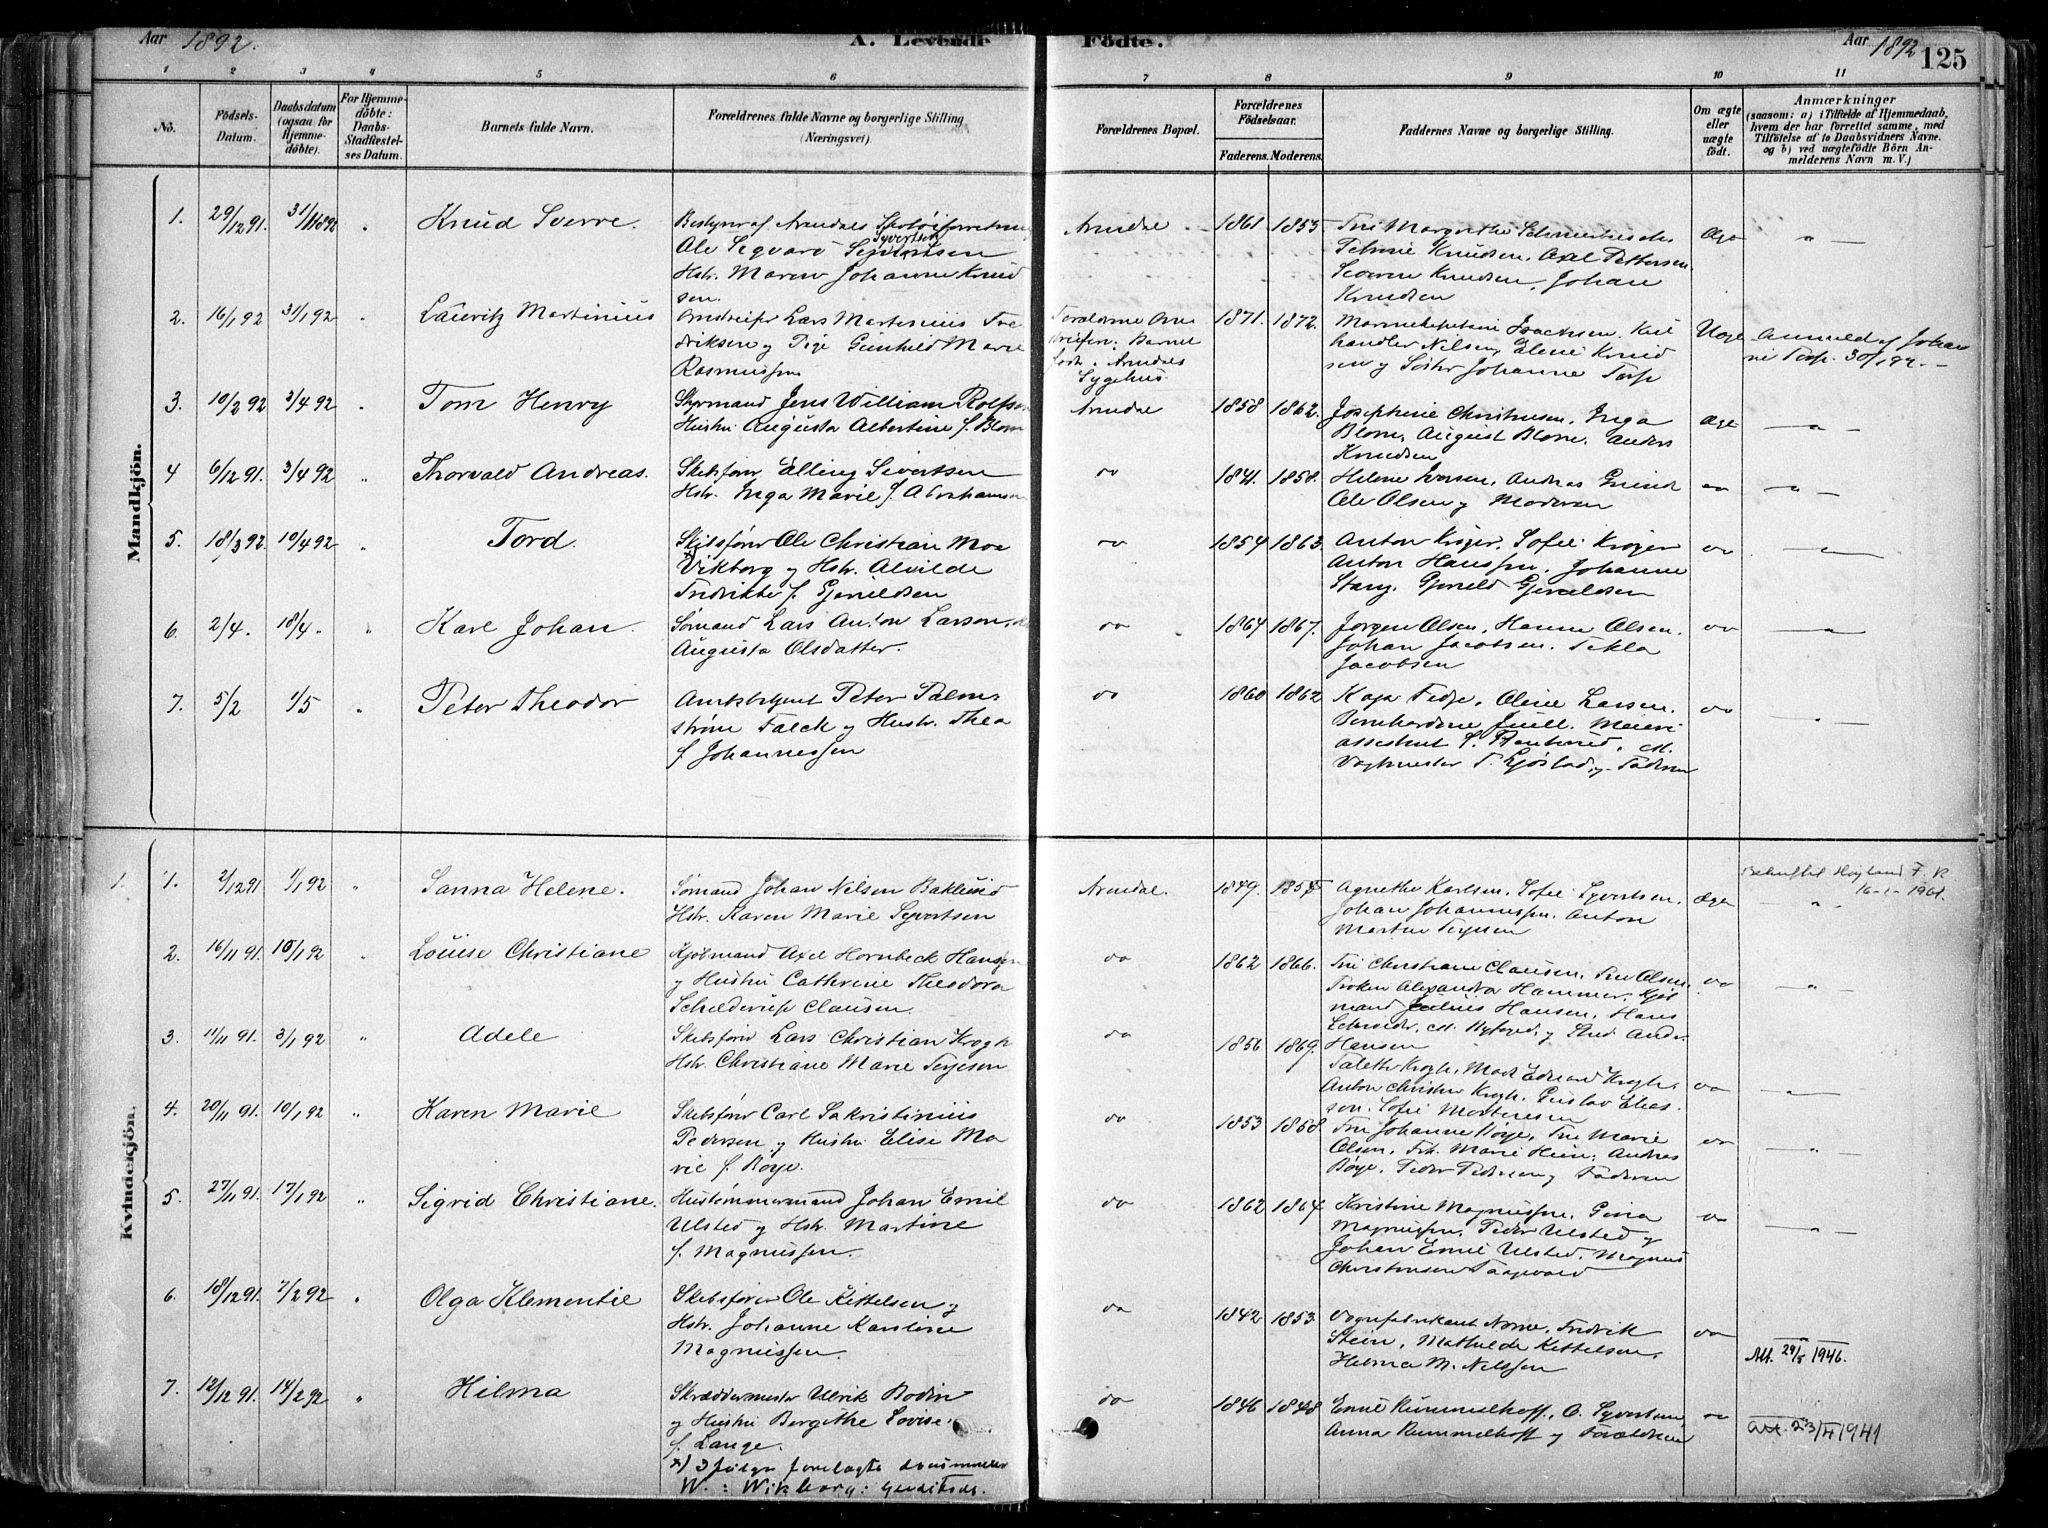 Aar 1892. A. Levende Födte. Aar 1892 125
1 2 3 4 5 6 7 8 9 10 11
No. Födsels-Datum. Daabsdatum (ogsaa för Hjemmedöbte). For Hjemmedöbte: Daabs-Stadfestelses Datum. Barnets fulde Navn. Forældrenes fulde Navne og borgerlige Stilling (Næringsvei). Forældrenes Bopæl. Forældrenes Födselsaar. Faderens. Moderens. Faddernes Navne og borgerlige Stilling. Om ægte eller uægte födt. Anmærkninger (saasom: a) i Tilfælde af Hjemmedaab, hvem der har forrettet samme, med Tilföielse af to Daabsvidners Navne. og b) ved uægtefödte Börn Anmelderens Navn m. V.)
Mandkjön.
1. 29/12 91. 31/1 1892 " Knud Sverre Bestyrer af Arendals Arendal 1861 1853 Æge
Ole Sigvard Syvertsen
Hstr. Maren Johanne Knudsen. Knudsen, Axel Pettersen, Johan Knudsen
2. 16/1 92 31/1 92 " Lauritz Martinius Lars Martinius Fredriksen og Pige Gunhild Marie Rasmussen 1871. 1872. Uæge Anmeldt af Johanne Torp. 30/1 92.
Barnet født i Arendals Sygehus. Isachsen, Nilsen, Elene Knudsen og Johanne Torp
3. 10/2 92 3/4 92 " Tom Henry Styrmand Jens William Rolfsen Arendal 1858 1862. Josephine Christensen, Inga Æge
Hustru Augusta Albertine f. Blom Blom, August Blom, Anders Knudsen
4 6/12 91. 3/4 92 " Thorvald Andreas. Skibsfører Elling Sivertsen do 1841. 1858. Helene Iversen, Andreas do
Hstr. Inga Marie f. Abrahamsen Ole Olsen og Moderen
5. 18/3 92. 10/4 92 " Tord. Skibsfører Ole Christian Moe do 1854 1863. Anton Krøger, Sofie Krøger do
Vikborg og Hstr. Alvilde Anton Hanssen, Johanne
Fredrikke f. Gjeruldsen Stang, Gjeruld Gjeruldsen
6. 2/4. 18/4. " Karl Johan. Sømand Lars Anton Larson, do 1864 1867. Jørgen Olsen, Hanne Olsen, do
Augusta Olsdatter. Johan Jacobsen. Tekla Jacobsen
7. 5/2 1/5 " Peter Theodor Peter Palmstrøm Falck og Hustr. Thea f. Johannessen do 1860 1862 Kaja Fedje, Oline Larsen. do
Vagtmester T. Gjøstad og Faderen
Kvindekjön.
1. 1. 2/12 91 1/1 92 " Sanna Helene. Sømand Johan Nilsen Arendal. 1849. 1854 Agnethe Karlsen, Sofie Syvertsen, Æge Bekreftet F. R. 16-1-1961.
Hstr. Karen Marie Syvertsen Johan Johannessen. Anton Martin Terjesen
2. 16/11 91. 10/1 92 Louise Christiane Kjøbmand Axel Hornbeck Hansen do 1862 1866. Fru Christiane Clausen, Fru Olsen, do
og Hustru Cathrine Theodora Frøken Alexandra Hammer, Kjøbmand Julius Hansen, Hans
Schelderup Clausen. Schrøder,
3. 11/11 91. 3/1 92 " Adele Skibsfører Lars Christian Krogh do 1856 1869. Hansen
Hstr. Christiane Marie Terjesen Talette Krogh, Mads Eduard Krogh, do
Anton Christian Krogh, Gustav Eliassen, Sofie Mortensen
4. 20/11 91. 10/1 92 " Karen Marie Skibsfører Carl Sakristinius do 1853 1868. Fru Johanne Røye, Fru Marie do
Pedersen og Hustru Elise Marie f. Røye. Olsen, Frk. Marie Hein, Andreas
Røye, Peder Pedersen og Faderen
5. 27/11 91. 17/1 92 " Sigrid Christiane. Hustømmermand Johan Emil do 1862 1864 Kristine Magnussen, Gina do
Ulsted og Hstr. Martine Magnussen, Peder Ulsted og
f. Magnussen. Johan Emil Ulsted, Magnus Christensen
6. 18/12 91. 7/2 92 " Olga Klementie Skibsfører Ole Kittelsen og do 1842 1853. Vognfabrikant Fredrik do
Hstr. Johanne Karoline Stein, Mathilde Kittelsen,
Magnussen. Helma M. Nilssen Att. 29/5 1946.
7. 12/12 91. 14/2 92 " Hilma Skræddermester Ulrik Bodin do 1846 1848 Emil Rummelhoff, O. Syvertsen do
og Hustru Bergithe Lovise Anna Rummelhoff og Forældrene Att. 23/4 1941
f. Lange.
x) Ifølge forelagte
W.: Wikborg: